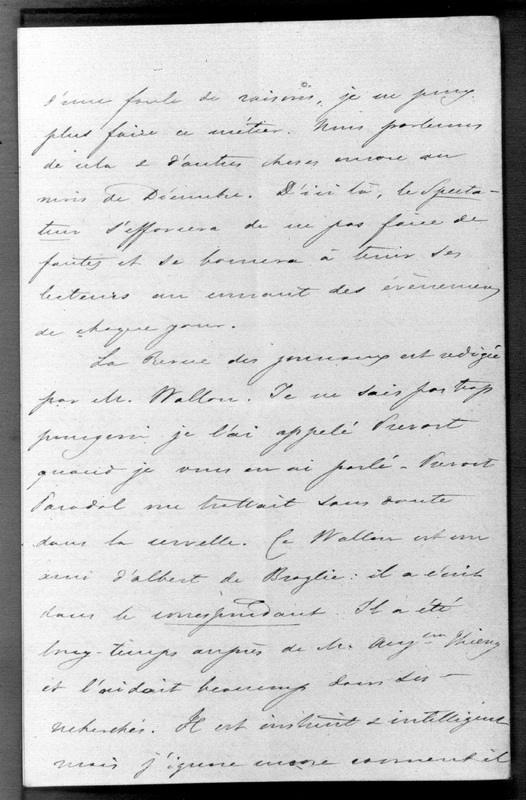 d'une foule de raisons, je ne puis
plus faire ce métier. Nous parlerons
de cela & d'autres choses encore au
mois de Décembre. D'ici là, le Specta-
teur s'efforcera de ne pas faire de
fautes et se bornera à tenir ses
lecteurs au courant des évènemens
de chaque jour.
La Revue des journaux est rédigée
par M. Wallon. Je ne sais pas trop
pourquoi je l'ai appelé Prevost
quand je vous en ai parlé - Prevost
Paradol me trottait sans doute
dans la cervelle. Ce Wallon est un
ami d'albert de Broglie : il a écrit
dans le correspondant. Il a été
long-temps auprès de M. Aug^tin Thierry
et l'aidait beaucoup dans ses -
recherches. Il est instruit & intelligent
mais j'ignore encore comment il